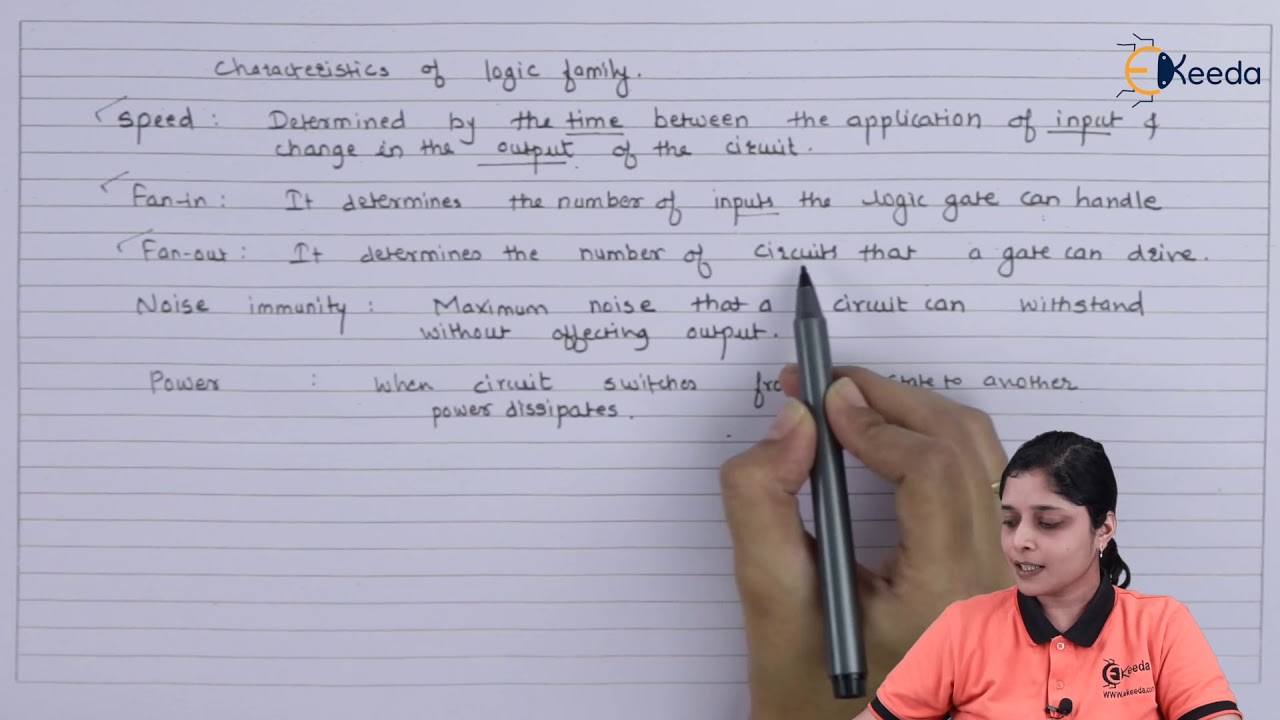 Characteristics of logic family.
Speed : Determined by the time between the application of input &
change in the output of the circuit.
Fan-in : It determines the number of inputs the logic gate can handle
Fan-out : It determines the number of circuits that a gate can drive.
Noise immunity : Maximum noise that a circuit can withstand
without affecting output.
Power : when circuit switches state to another
power dissipates.
EKeeda
EKeeda
www.ekeeda.com